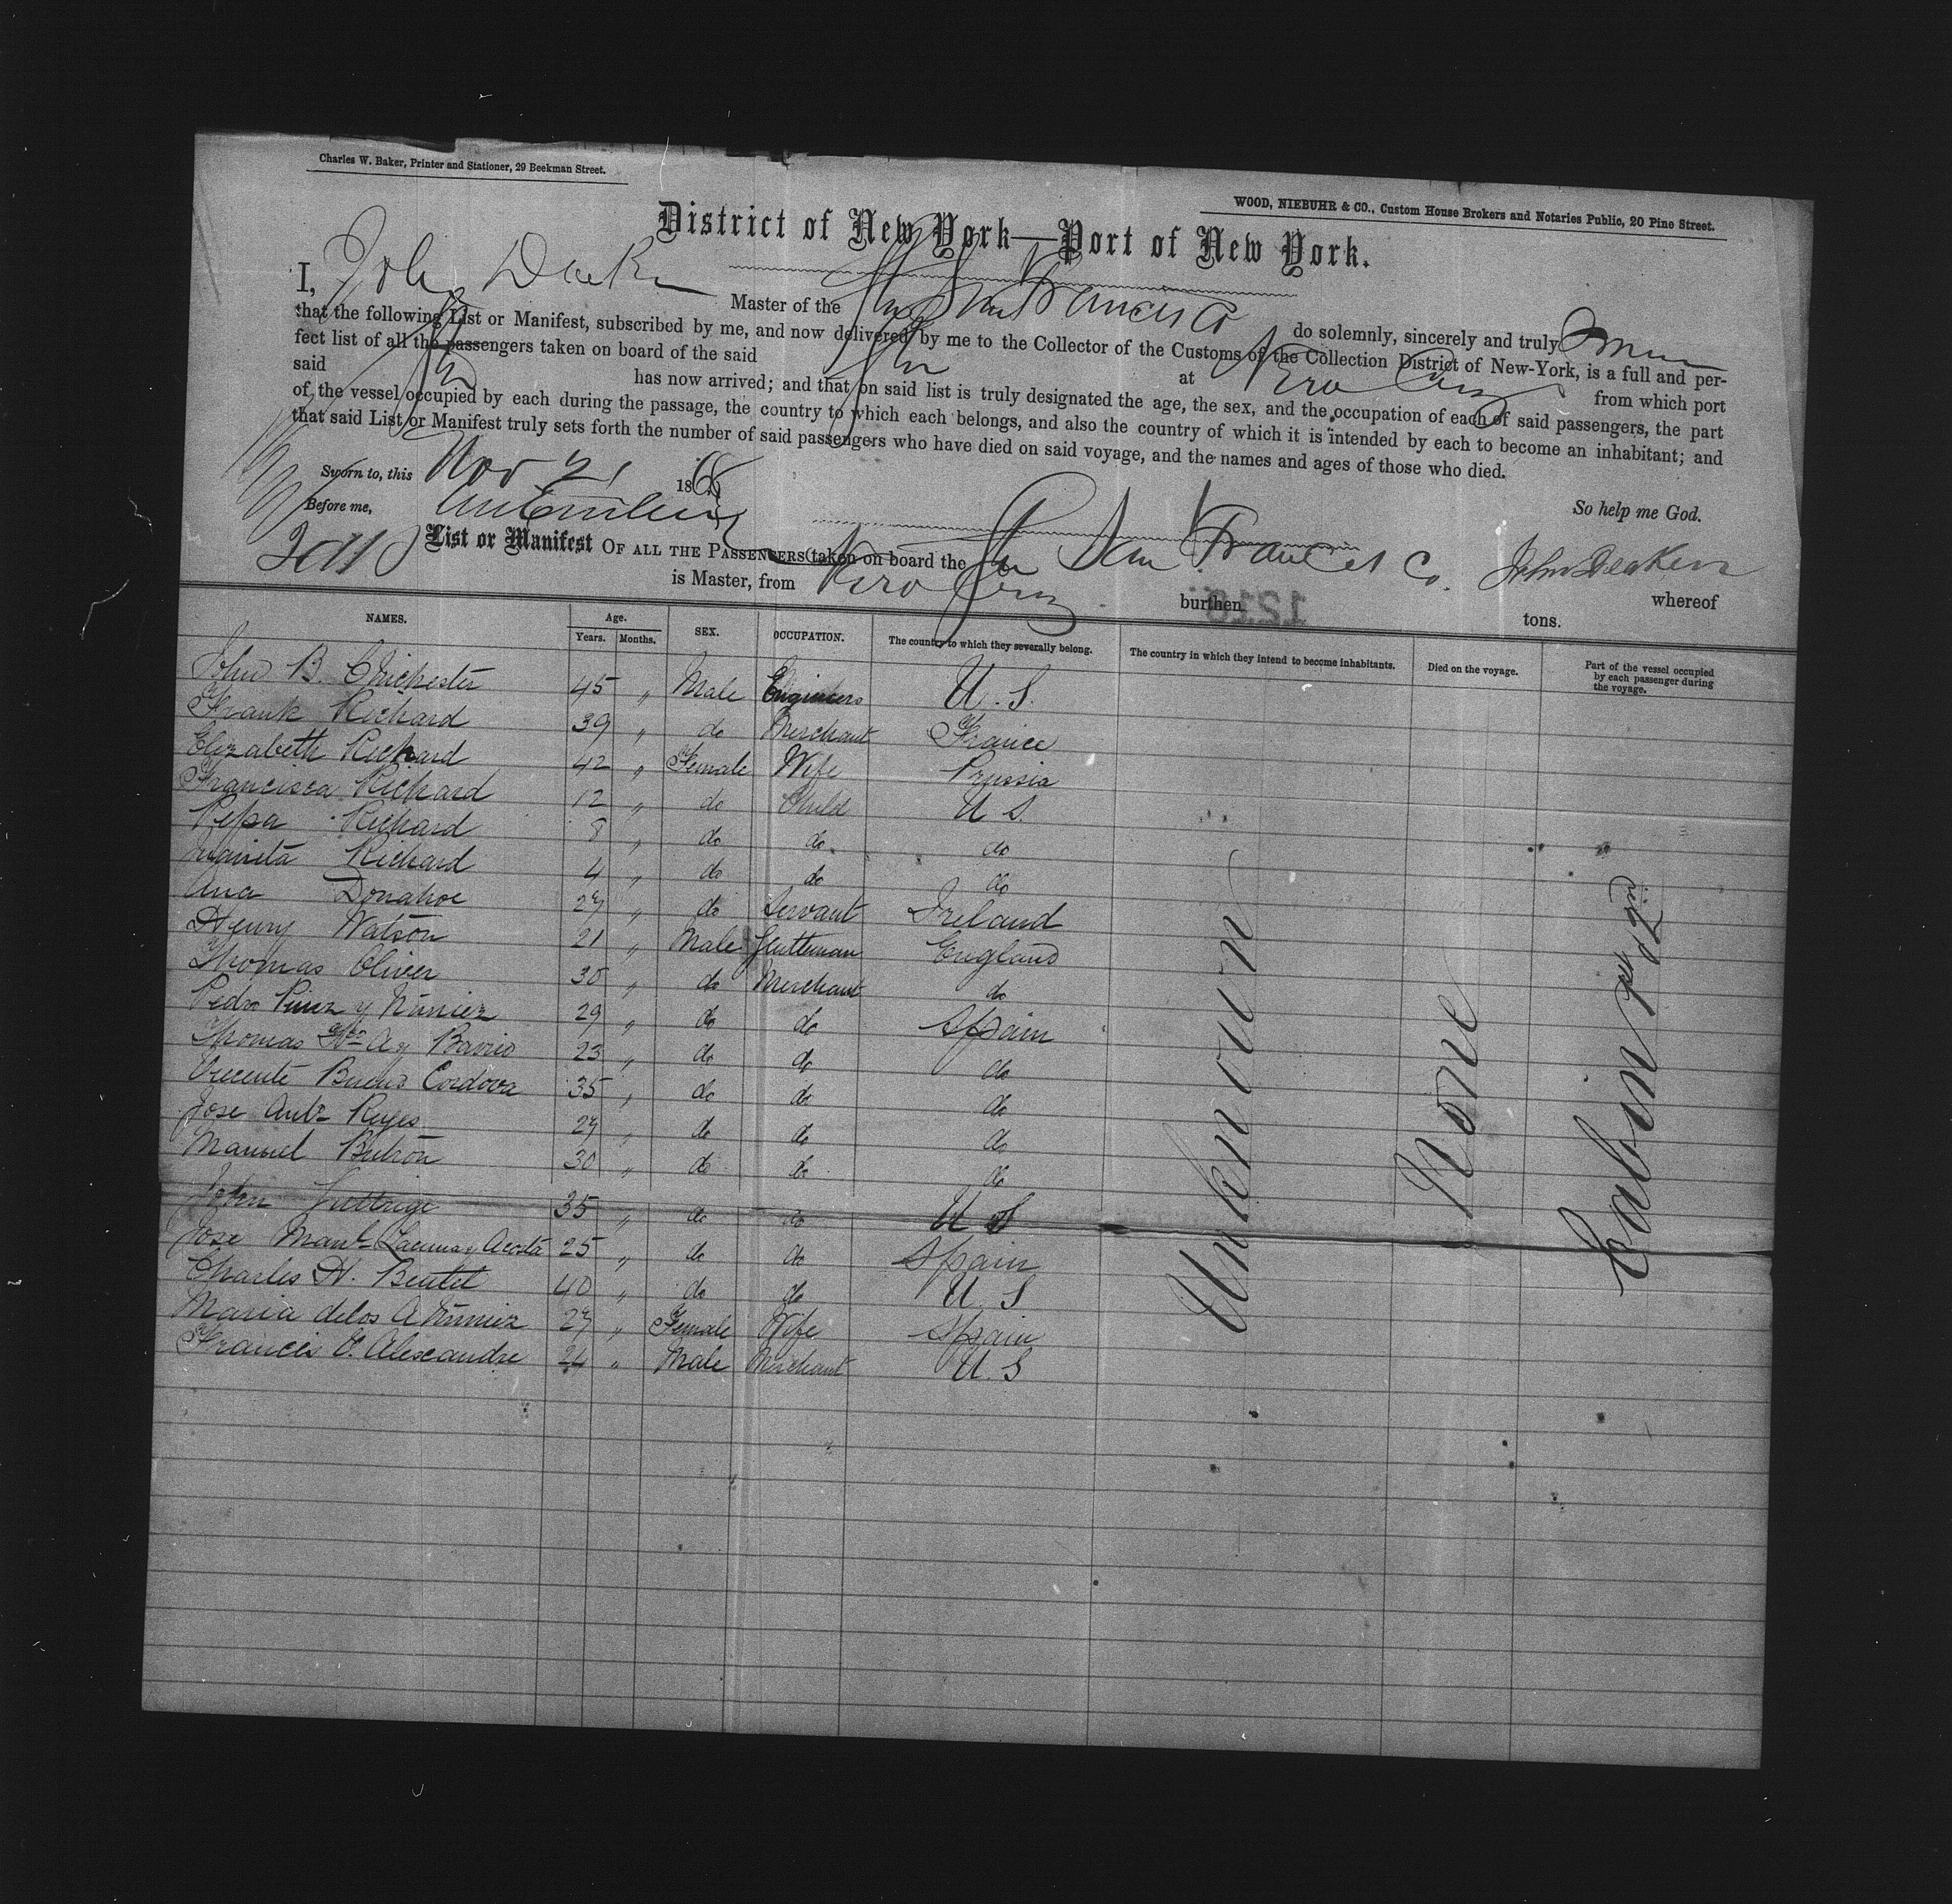 Charles W. Baker, Printer and Stationer, 29 Beekman Street.
WOOD, NIEBUHR & CO., Custom House Brokers and Notaries Public, 20 Pine Street.
District of New York—Port of New York.
I, John Deaken Master of the San Francisco do solemnly, sincerely and truly Swear
that the following List or Manifest, subscribed by me, and now delivered by me to the Collector of the Customs of the Collection District of New-York, is a full and per-
fect list of all the passengers taken on board of the said Str at Vera Cruz from which port
said Str has now arrived; and that on said list is truly designated the age, the sex, and the occupation of each of said passengers, the part
of the vessel occupied by each during the passage, the country to which each belongs, and also the country of which it is intended by each to become an inhabitant; and
that said List or Manifest truly sets forth the number of said passengers who have died on said voyage, and the names and ages of those who died.
Sworn to, this Nov 21 186
So help me God.
Before me,
John Deaken
List or Manifest OF ALL THE PASSENGERS taken on board the Str San Francisco whereof
is Master, from Vera Cruz burthen 1216 tons.
NAMES. Age. Years. Months. SEX. OCCUPATION. The country to which they severally belong. The country in which they intend to become inhabitants. Died on the voyage. Part of the vessel occupied by each passenger during the voyage.
John B. Chichester 45 " Male Engineer U. S.
Frank Richard 39 " do Merchant France
Elizabeth Richard 42 " Female Wife Prussia
Francisca Richard 12 " do Child U S.
Pepa Richard 8 " do do do
Richard 4 " do do do
Ana Donahoe 27 " do Servant Ireland
Henry Watson 21 " Male Gentleman England
Thomas Oliver 30 " do Merchant do
Pedro y Nuniez 29 " do do Spain
Thomas A y Barrio 23 " do do do
Vicente Bueno Cordova 35 " do do do
Jose Antº Reyes 27 " do do do
Manuel Butron 30 " do do do
John 35 " do do U S
Jose Manl Acosta 25 " do do Spain
Charles H. 40 " do do U. S
Maria delos A Nuniez 27 " Female Wife Spain
Francis V. Alexandre 24 " Male Merchant U. S
Unknown
None
Cabin 1st 2nd